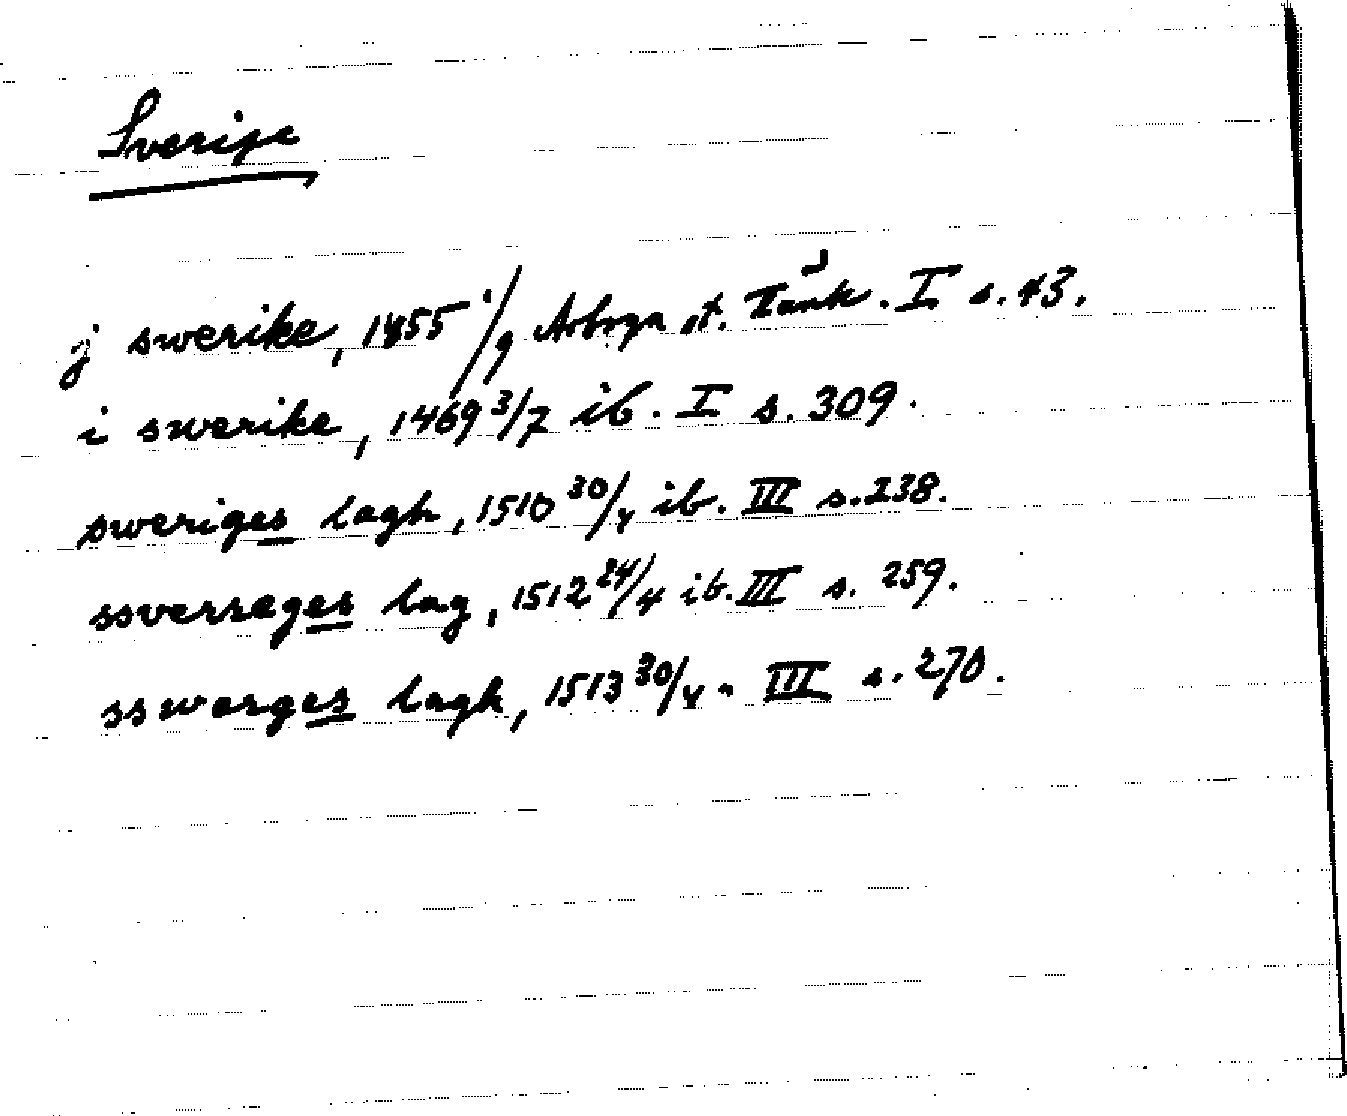 Sverige
j swerike, 1455 1/9 Arboga st. Tänk. I s. 43.
i swerike, 1469 3/7 ib. I s. 309.
sweriges lagh, 1510 30/4 ib. III s. 238.
ssverreges lag, 1512 24/4 ib. III s. 259.
sswerges lagh, 1513 30/4 " III s. 270.